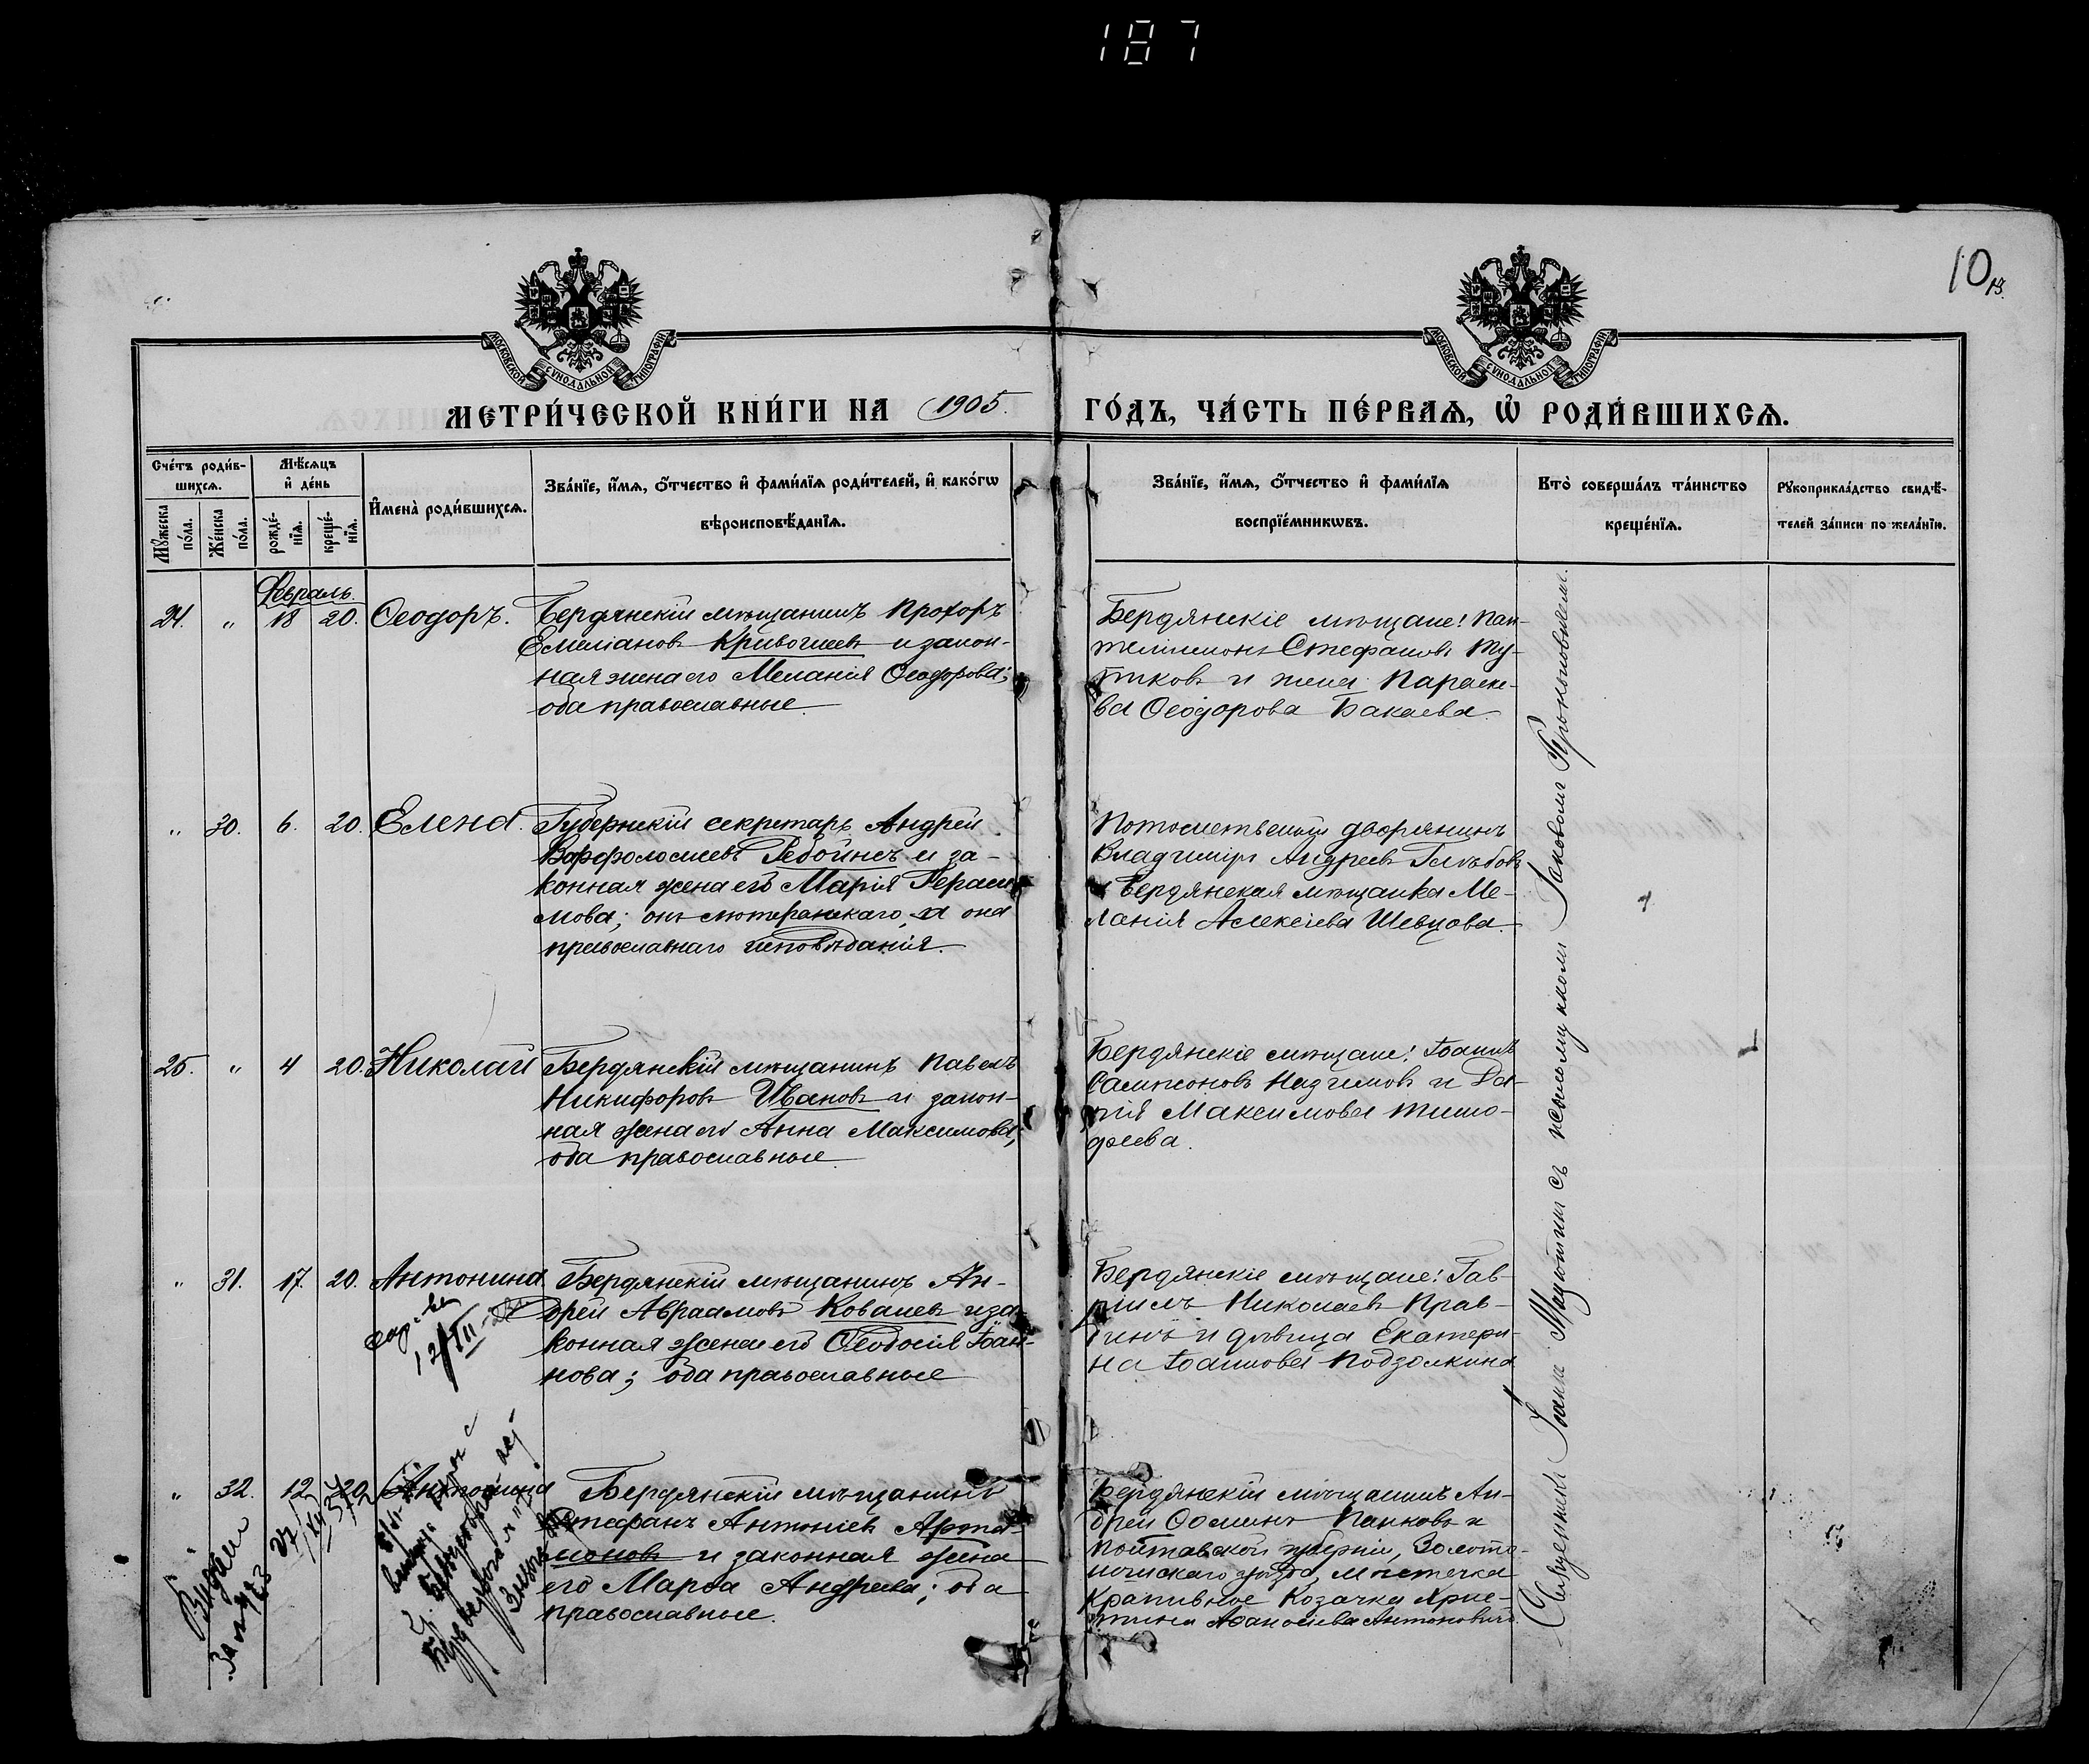 187
10
МОСКОВСКОЙ СѴНОДАЛЬНОЙ ТИПОГРАФІИ
МОСКОВСКОЙ СѴНОДАЛЬНОЙ ТИПОГРАФІИ
МЕТРИ́ЧЕСКОЙ КНИ́ГИ НА 1905. ГО́ДЪ, ЧА́СТЬ ПЕ́РВАѦ, Ѡ҆ РОДИ́ВШИХСѦ.
Сче́тъ роди́в-
шихсѧ.
Мꙋ́жеска по́ла.
Же́нска по́ла.
Мѣ́сѧцъ и҆ де́нь
рожде́-нїѧ.
креще́-нїѧ.
И҆мена̀ роди́вшихсѧ.
Зва́нїе, и҆́мѧ, ѻ҆́тчество и҆ фами́лїѧ роди́телей, и҆ како́гѡ
вѣроисповѣ́данїѧ.
Зва́нїе, и҆́мѧ, ѻ҆́тчество и҆ фами́лїѧ
воспрїе́мникѡвъ.
Кто̀ соверша́лъ та́инство
креще́нїѧ.
Рꙋкоприкла́дство свидѣ́-
телей за́писи по жела́нїю.
Февраль.
24. " 18 20. Ѳеодоръ. Бердянскій мѣщанинъ Прохоръ
Емеліановъ Кривошеевъ и закон-
ная жена его Меланія Ѳеодорова;
оба православные.
Бердянскіе мѣщане: Пан-
телимонъ Стефановъ Ту-
тиковъ и жена Параске-
ва Ѳеодорова Бакаева.
" 30. 6. 20. Елена. Губернскій секретарь Андрей
Варфоломеевъ и за-
конная жена его Марія Гераси-
мова; онъ лютеранскаго, а она
православнаго исповѣданія.
Потомственный дворянинъ
Владиміръ Андреевъ Глѣбовъ
и Бердянская мѣщанка Ме-
ланія Алексіева Шевцова.
25. " 4 20. Николай Бердянскій мѣщанинъ Павелъ
Никифоровъ Ивановъ и закон-
ная жена его Анна Максимова;
оба православные.
Бердянскіе мѣщане: Іоаннъ
Сампсоновъ Назимовъ и Да-
рія Максимова Тимо-
феева.
" 31. 17. 20. Антонина. Бердянскій мѣщанинъ Ан-
дрей Авраамовъ Ковалевъ и за-
конная жена его Ѳеодосія Іоан-
нова; оба православные
Бердянскіе мѣщане: Гав-
риилъ Николаевъ Прав-
динъ и дѣвица Екатери-
на Іоаннова Подзолкина
" 32. 12. 20. Антонина Бердянскій мѣщанинъ
Стефанъ Антоніевъ Арта-
моновъ и законная жена
его Марѳа Андреева; оба
православные.
Бердянскій мѣщанинъ Ан-
дрей Ѳоминъ Панковъ и
Полтавской губерніи, Золото-
ношскаго уѣзда, мѣстечка
Крапивное Козачка Хрис-
тина Аѳанасіева Антоновичъ.
Священникъ Іоаннъ съ псаломщикомъ Іаковомъ